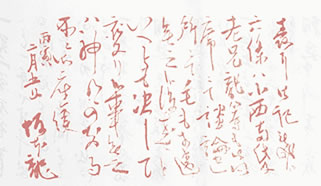 表に御記被成候
六條ハ小西両氏及
老兄龍等も御同
席ニて談論セし
所ニて毛も相違
無之候後来と
いへとも決して
変り候事無之
ハ神明の知る
所ニ御座候
丙寅
二月五日
坂本龍